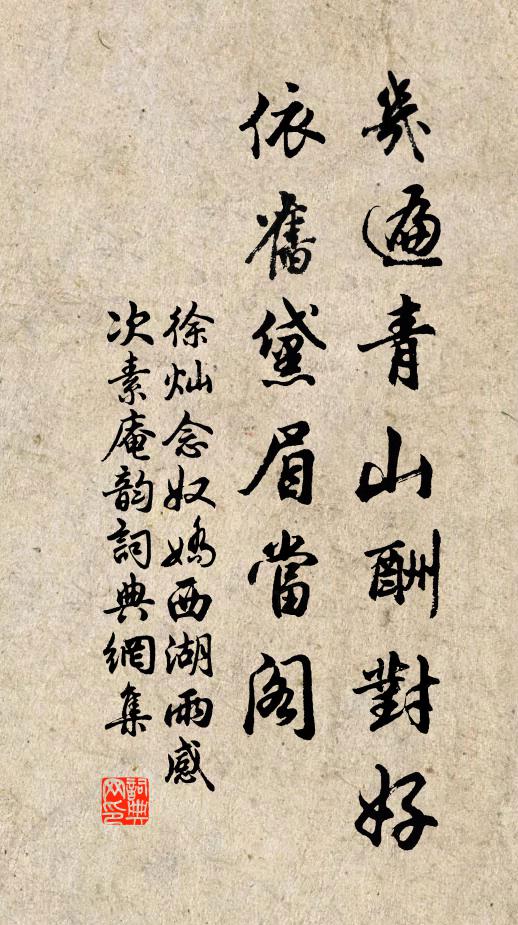 幾遍青山酬對好
依舊黛眉當閣
徐灿念奴嬌西湖雨感
次素庵韵詞典網集
詞典网印